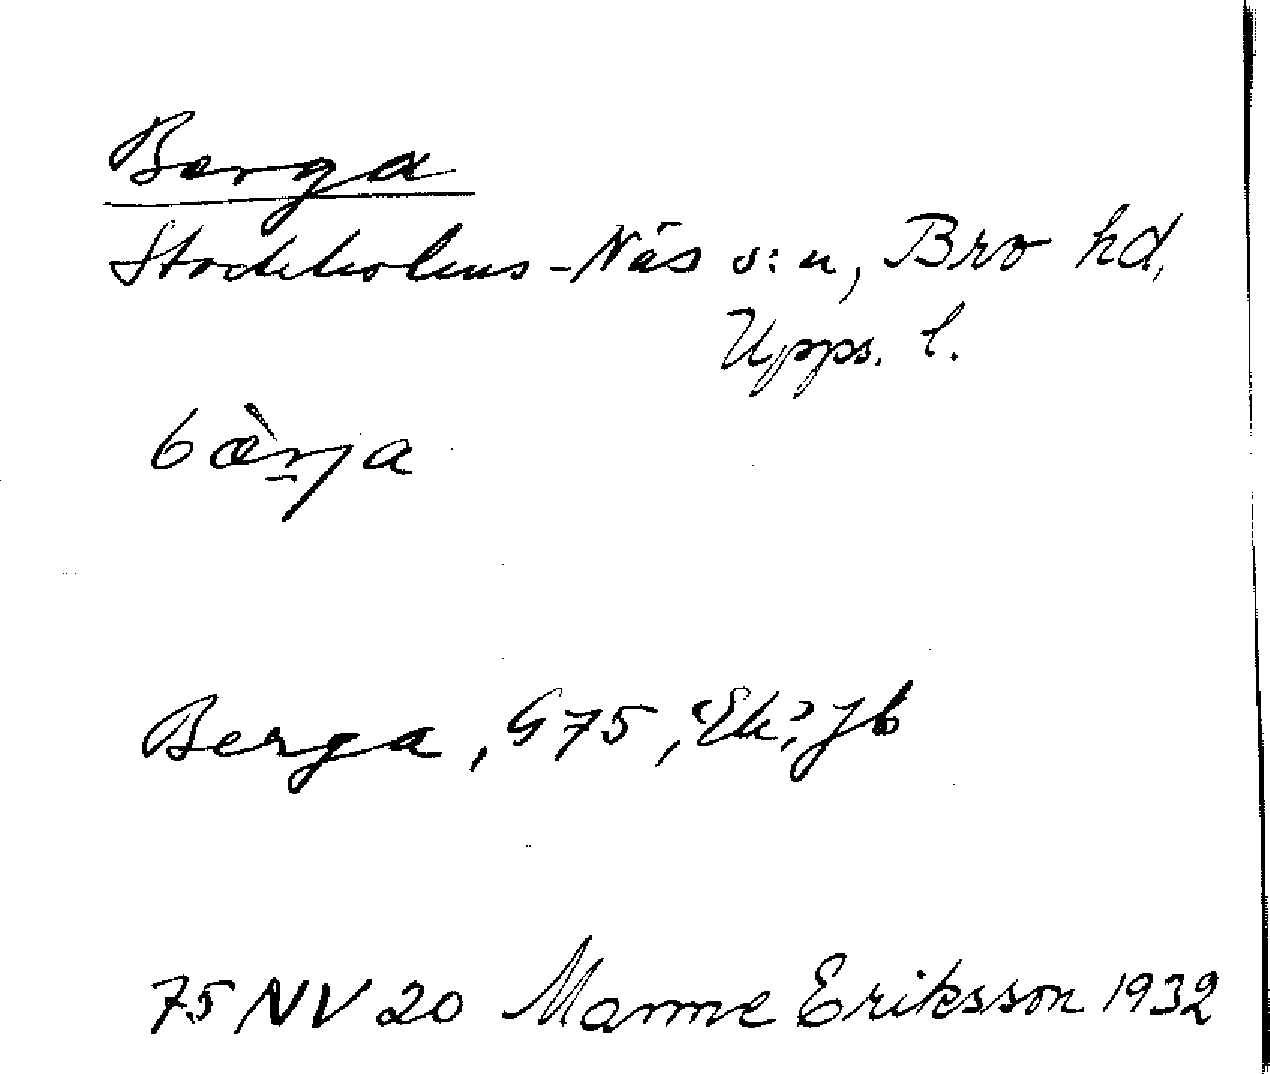 Berga
Stockholms-Näs s:n, Bro hd,
Upps. l.
bæ̀rja
Berga, G75, "Ek", Jb
75 NV 20 Manne Eriksson 1932